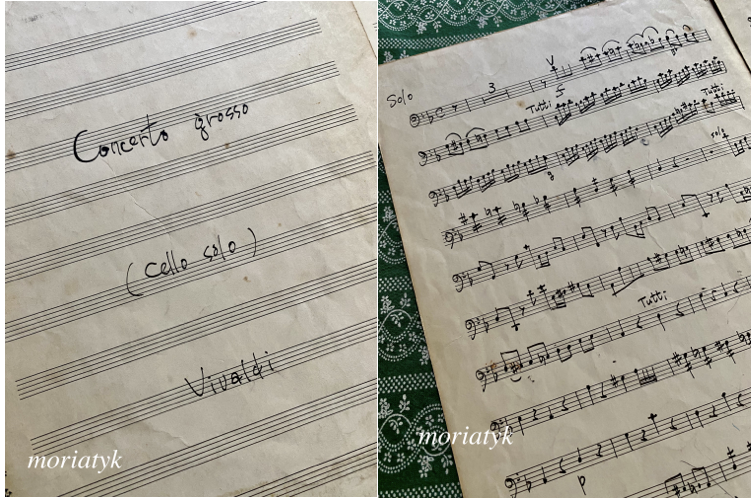 Concerto grosso
(Cello solo)
Vivaldi
moriatyk
Solo
3
V
Tutti
5
Tutti
solo
Tutti
moriatyk
p